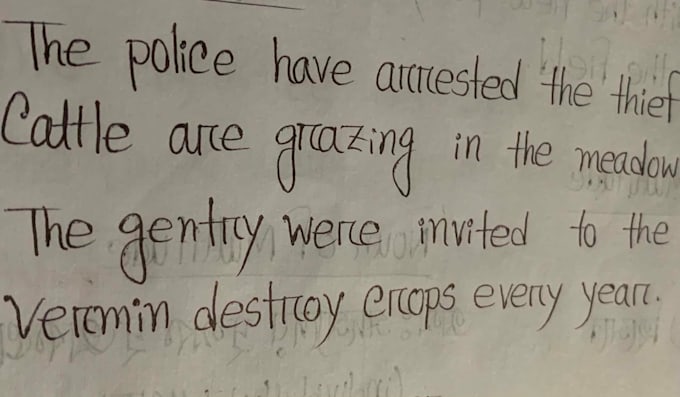 The police have arrested the thief
Cattle are grazing in the meadow
The gentry were invited to the
Vermin destroy crops every year.